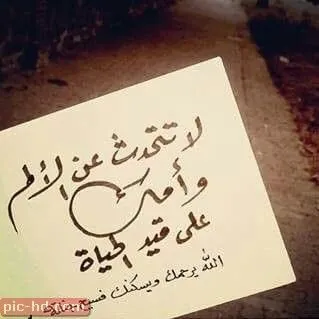 لا تتحدث عن الألم
وأمك
على قيد الحياة
الله يرحمك ويسكنك فسيح
pic-hd.com